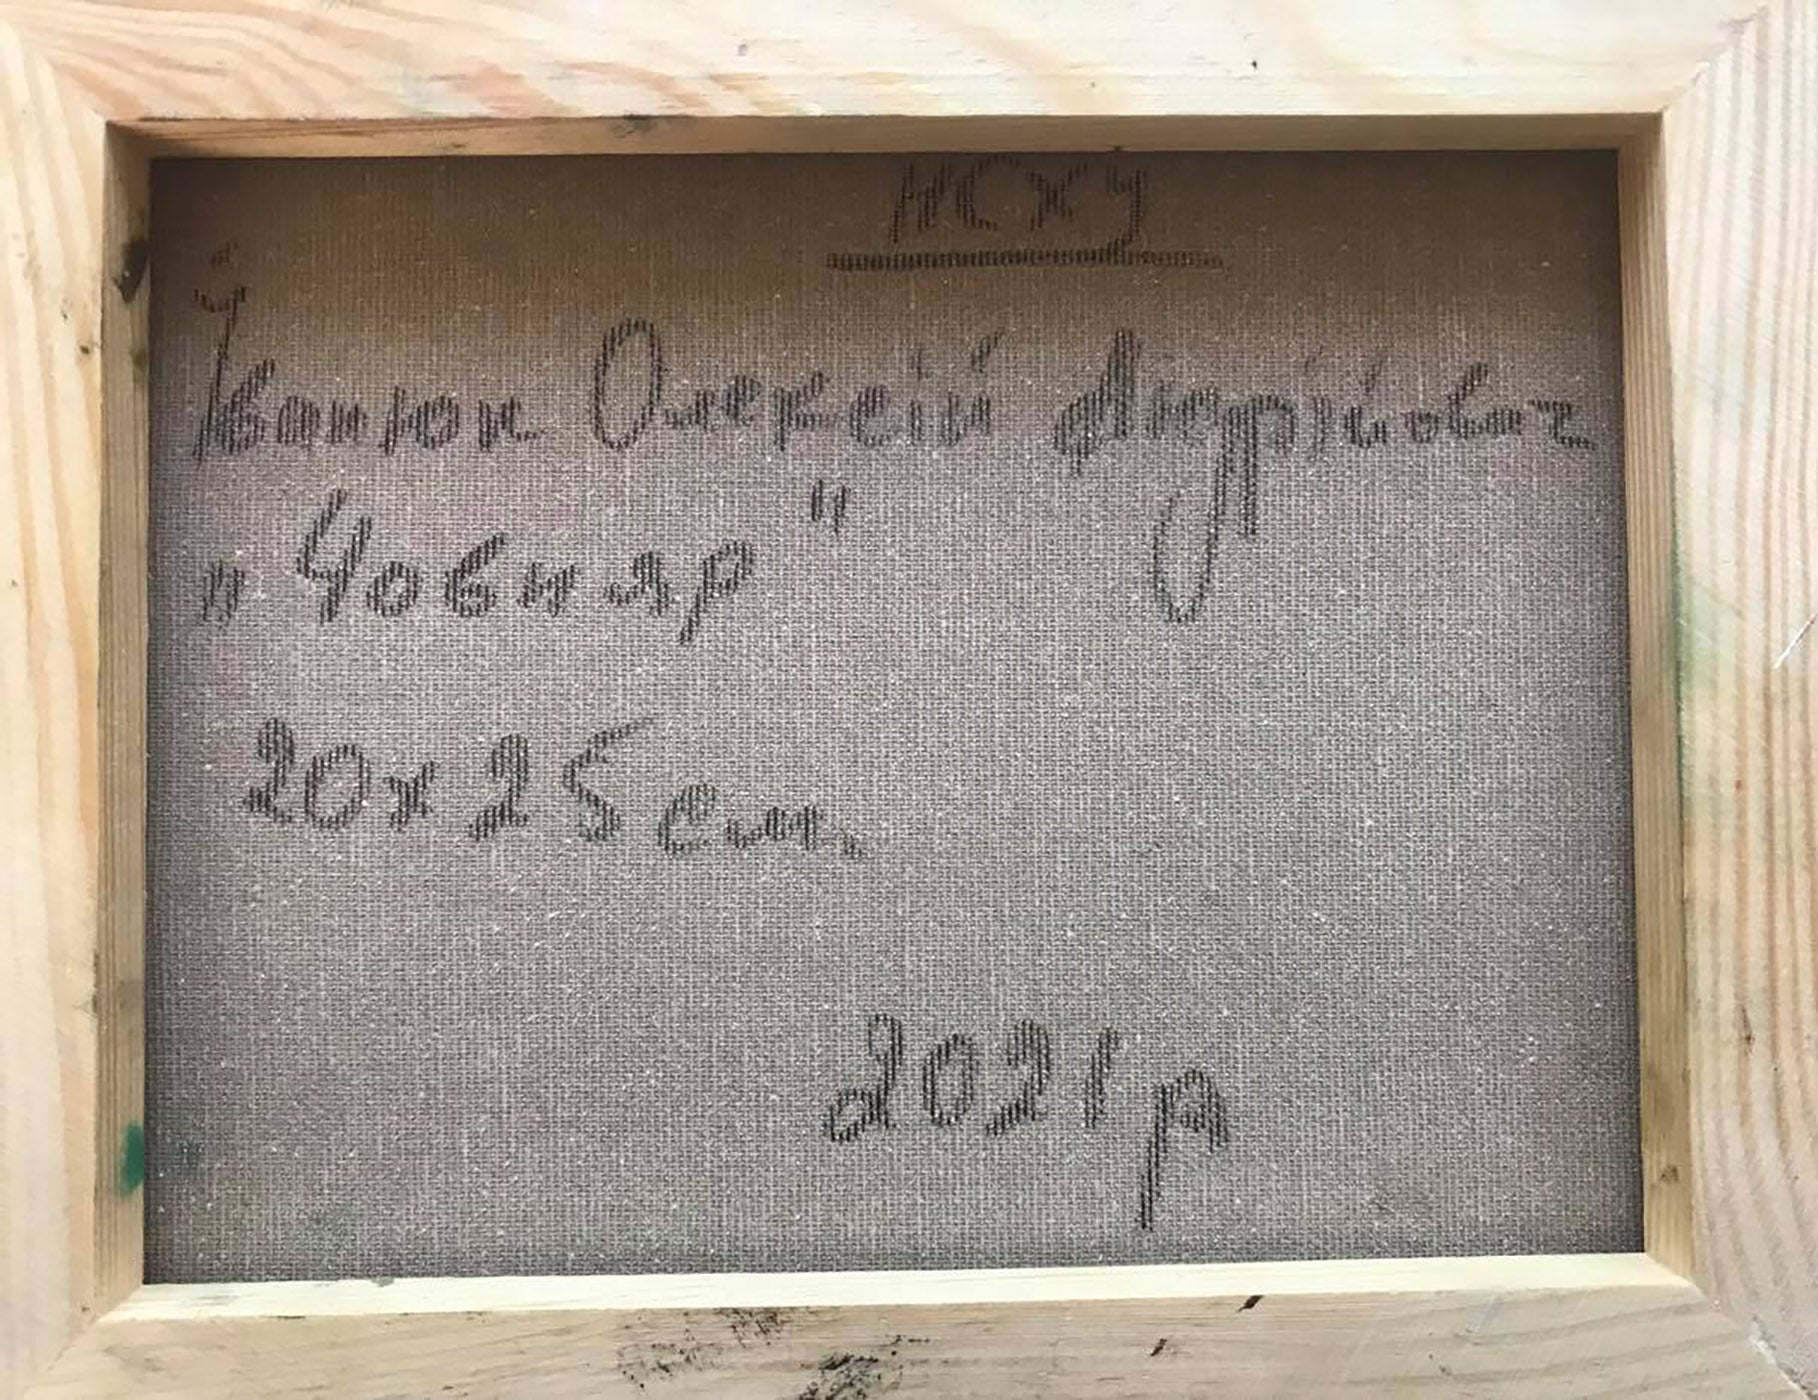 НСХУ
Іванюк Олексій Андрійович
„Човняр"
20х25см.
2021р